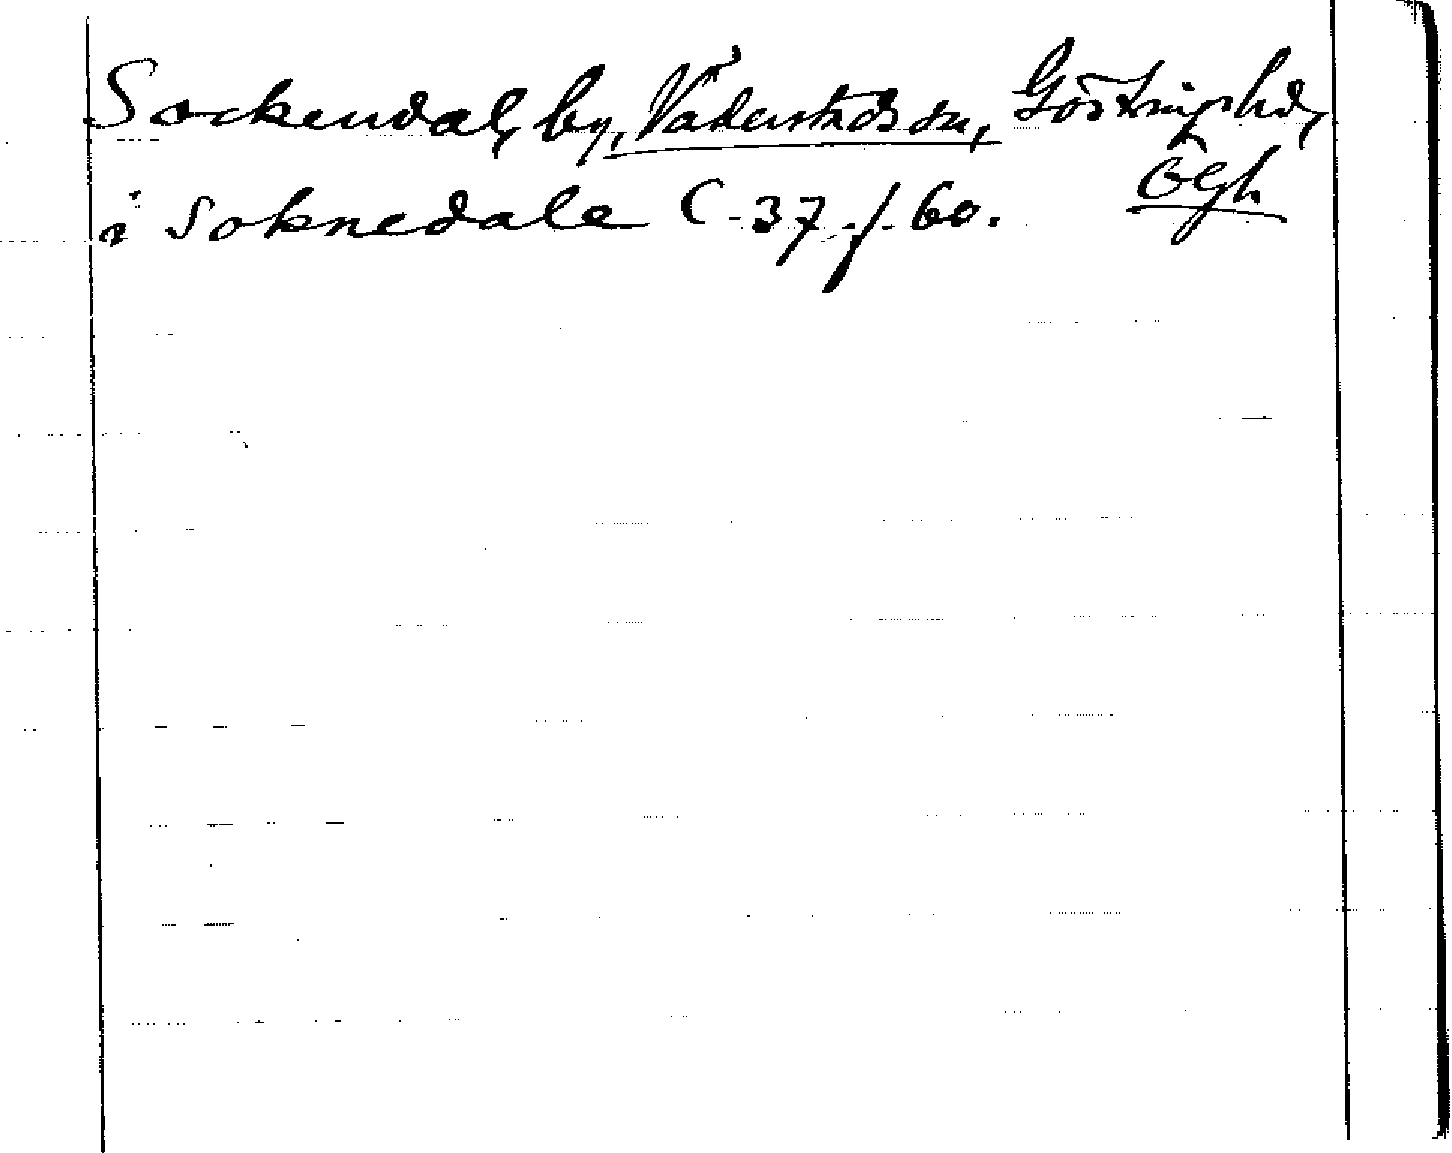 Sockendal, by, Väderstads sn, Göstrings hd,
Ögh
i Soknedale C 37 f 60.